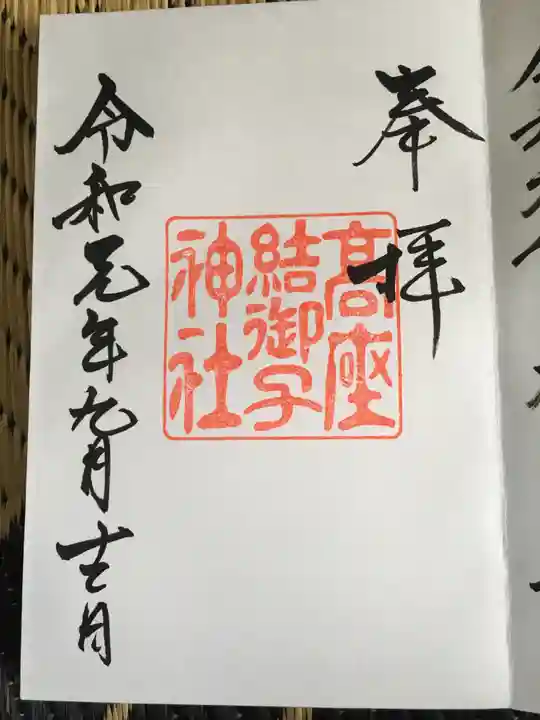 奉拝
高座
結御子
神社
令和元年九月十日